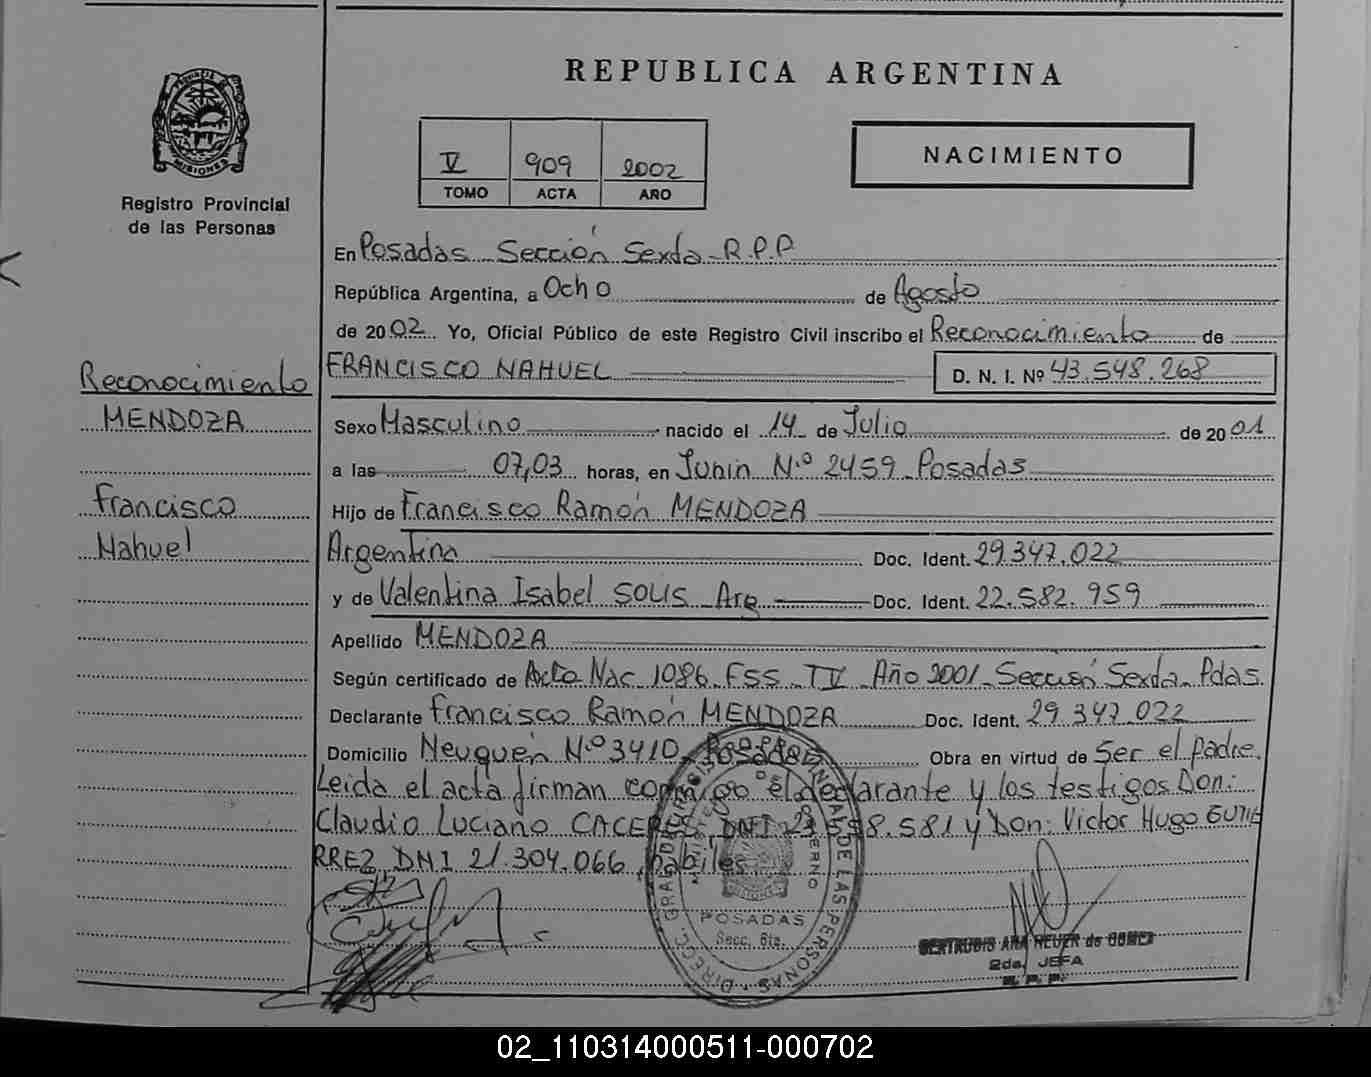 REPUBLICA ARGENTINA
V 909 2002
TOMO ACTA AÑO
NACIMIENTO
MISIONES
Registro Provincial
de las Personas
En Posadas Sección Sexta R.P.P
República Argentina, a Ocho de Agosto
de 2002 Yo, Oficial Público de este Registro Civil inscribo el Reconocimiento de
FRANCISCO NAHUEL D. N. I. Nº 43.548.268
Reconocimiento
MENDOZA
Francisco
Nahuel
Sexo Masculino nacido el 14 de Julio de 2001
a las 07,03 horas, en Junin N.º 2459 Posadas
Hijo de Francisco Ramón MENDOZA
Argentina Doc. Ident. 29.347.022
y de Valentina Isabel SOLIS Arg Doc. Ident. 22.582.959
Apellido MENDOZA
Según certificado de Acta Nac 1086 FSS IV Año 2001 Sección Sexta Pdas.
Declarante Francisco Ramón MENDOZA Doc. Ident. 29 347.022
Domicilio Neuquén N.º 3410 Posadas Obra en virtud de Ser el padre.
Leida el acta firman conmigo el declarante y los testigos Don:
Claudio Luciano CACERES DNI 58.581 y Don: Victor Hugo GUTIE
RREZ DNI 21.304.066, habiles.
POSADAS
Secc. 6ta.
GERTRUDIS ANA HEUER de GOMEZ
2da. JEFA
R. P. P.
02_110314000511-000702